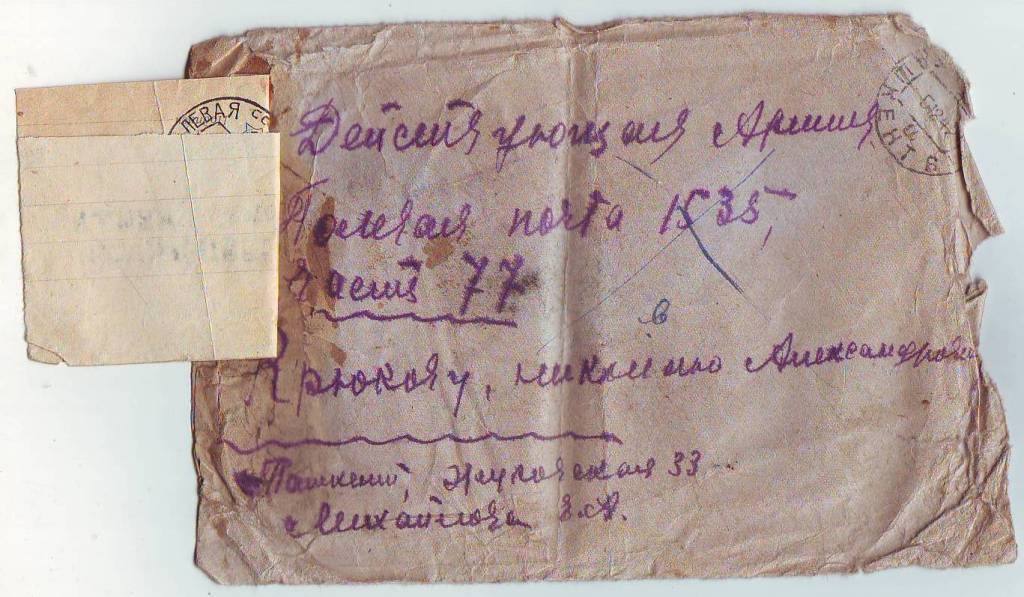 ЛЕВАЯ СС
ТАШКЕНТ
Действующая Армия
Полевая почта 1535,
часть 77
в
Крюкову, Александрович
Ташкент, Жуковская 33
Михайлова З.А.